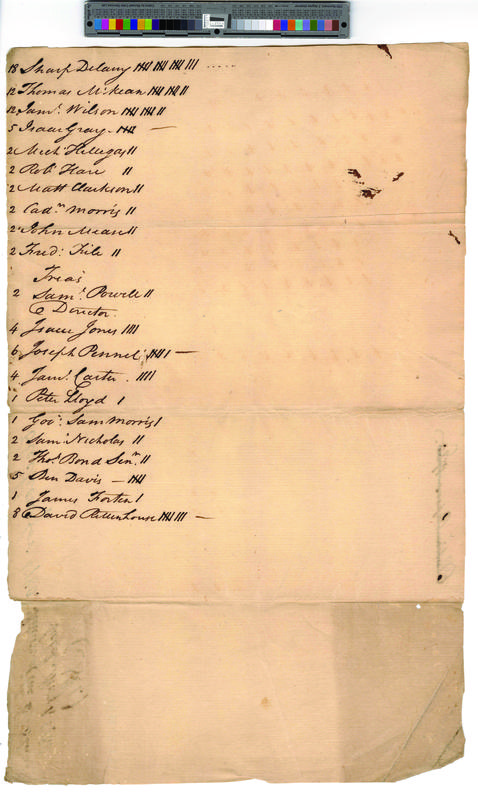 18 Sharp Delany
12 Thomas McKean
12 Jamˢ Wilson
5 Isaac Gray
2 Mich Hillegas
2 Robᵗ Hare
2 Matt Clarkson
2 Cadʳ Morris
2 John Mease
2 Fredᵏ Kile
Treaˢ
2 Samˡ Powell
Director
4 Isaac Jones
6 Joseph Pennel
4 Jamˢ Carter
1 Peter Lloyd
1 Govʳ Sam Morris
2 Samˡ Nicholas
2 Thoˢ Bond Senʳ
5 Ben Davis
1 James Forten
8 David Rittenhouse